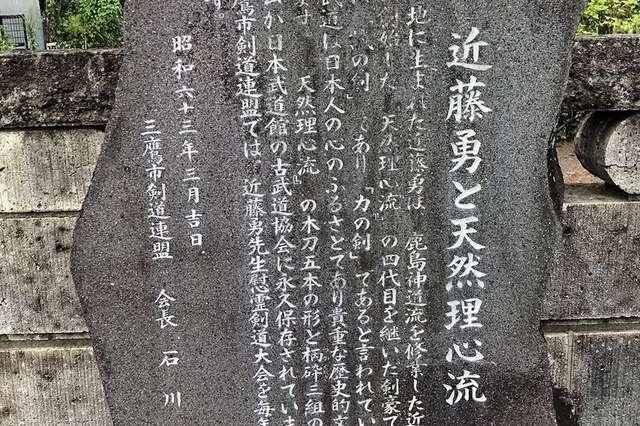 近藤勇と天然理心流
地に生まれた近藤勇は 鹿島神道流を修業した近
創始した『天然理心流』の四代目を継いだ剣豪で
の剣』であり『力の剣』であると言われてい
武道は日本人の心のふるさとであり貴重な歴史的文
ます 天然理心流』の木刀五本の形と柄砕三組の
が日本武道館の古武道協会に永久保存されていま
鷹市剣道連盟では 近藤勇先生慰霊剣道大会を毎
す。
昭和六十三年三月吉日
三鷹市剣道連盟 会長 石川